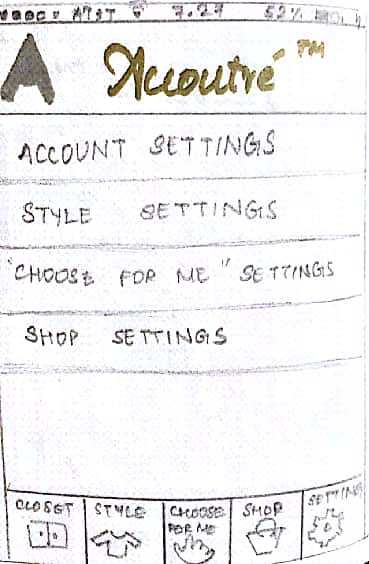 AT&T 7:29 52%
A Accoutré™
ACCOUNT SETTINGS
STYLE SETTINGS
"CHOOSE FOR ME" SETTINGS
SHOP SETTINGS
CLOSET STYLE CHOOSE FOR ME SHOP SETTINGS